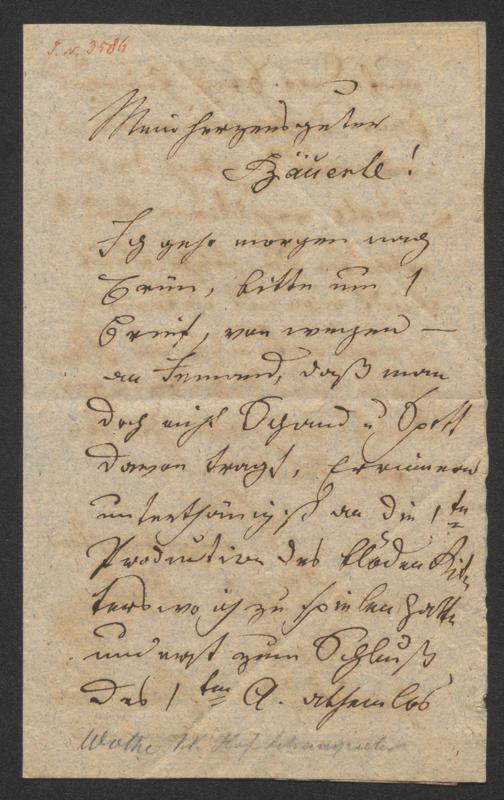 I. N. 3586
Mein herzensguter
Bäuerle!
Ich gehe morgen nach
Brün, bitte um 1
Brief, von wegen —
an Jemand, daß man
doch nicht Schand u Spott
davon tragt, Erinnere
unterthänigst an die 1te
Production des blöden Rit,
ters wo ich zu spielen hatte
und erst zum Schluß
des 1ten A. athemlos
Wothe k. k. Hofschauspieler